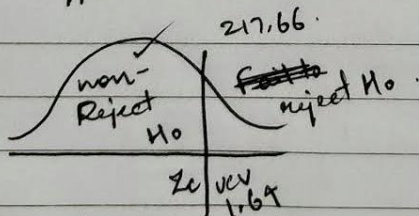 217.66.
non-
Reject
H0
reject H0.
Zc
UCV
1.64